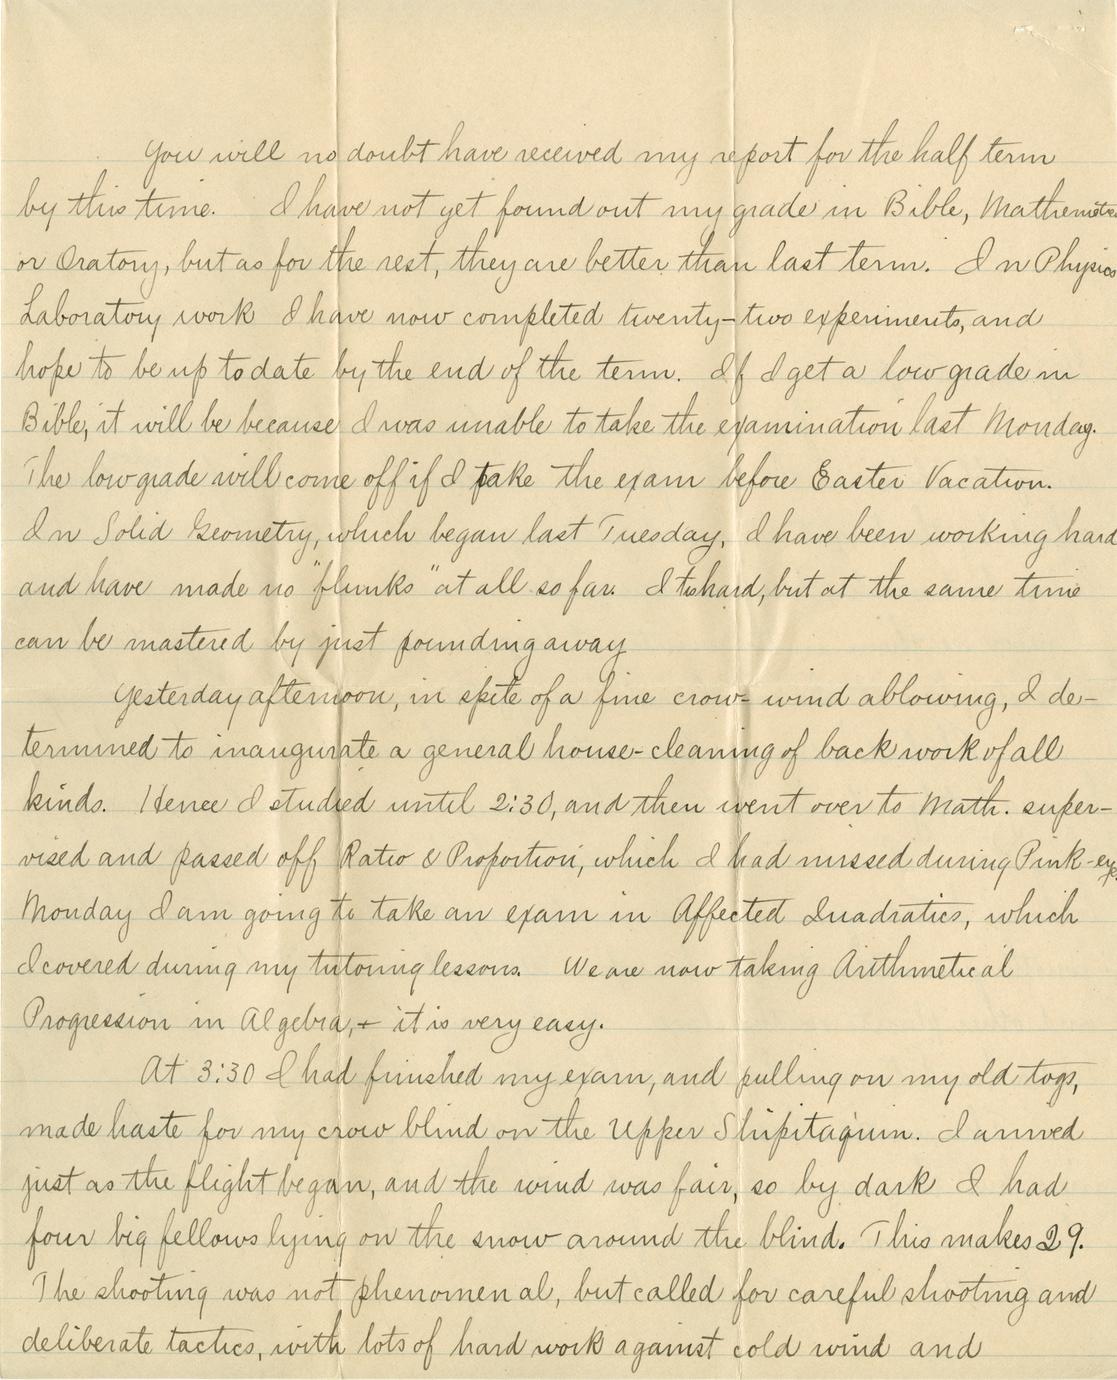 You will no doubt have received my report for the half term
by this time. I have not yet found out my grade in Bible, Mathematics
or Oratory, but as for the rest, they are better than last term. In Physics
Laboratory work I have now completed twenty-two experiments, and
hope to be up to date by the end of the term. If I get a low grade in
Bible, it will be because I was unable to take the examination last Monday.
The low grade will come off if I take the exam before Easter Vacation.
In Solid Geometry, which began last Tuesday, I have been working hard
and have made no "flunks" at all so far. It is hard, but at the same time
can be mastered by just pounding away
Yesterday afternoon, in spite of a fine crow-wind ablowing, I de-
termined to inaugurate a general house-cleaning of back work of all
kinds. Hence I studied until 2:30, and then went over to Math. super-
vised and passed off Ratio & Proportion, which I had missed during Pink-eye.
Monday I am going to take an exam in Affected Quadratics, which
I covered during my tutoring lessons. We are now taking Arithmetical
Progression in Algebra, + it is very easy.
At 3:30 I had finished my exam, and pulling on my old togs,
made haste for my crow blind on the Upper Shipitaquin. I arrived
just as the flight began, and the wind was fair, so by dark I had
four big fellows lying on the snow around the blind. This makes 29.
The shooting was not phenomenal, but called for careful shooting and
deliberate tactics, with lots of hard work against cold wind and